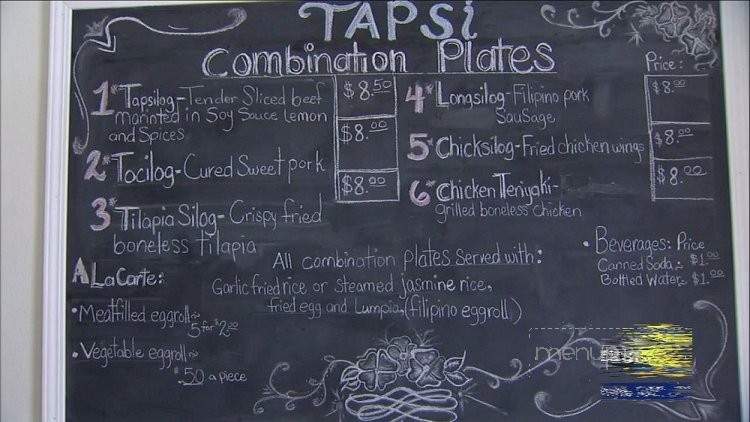 TAPSi
Combination Plates
Price:
1* Tapsilog-Tender Sliced beef
marinted in Soy Sauce lemon
and Spices
$8.50
2* Tocilog-Cured Sweet pork
$8.00
3* Tilapia Silog-Crispy fried
boneless tilapia
$8.00
4* Longsilog-Filipino pork
Sausage
$8.00
5* Chicksilog-Fried chicken wings
$8.00
6* Chicken Teriyaki-
grilled boneless Chicken
$8.00
All combination plates Served with:
Garlic fried rice or Steamed jasmine rice,
fried egg and Lumpia, (filipino eggroll)
A La Carte:
• Meatfilled eggroll~
5 for $2.00
• Vegetable eggroll~
$.50 a piece
• Beverages: Price
Canned Soda~ $1.00
Bottled Water~ $1.00